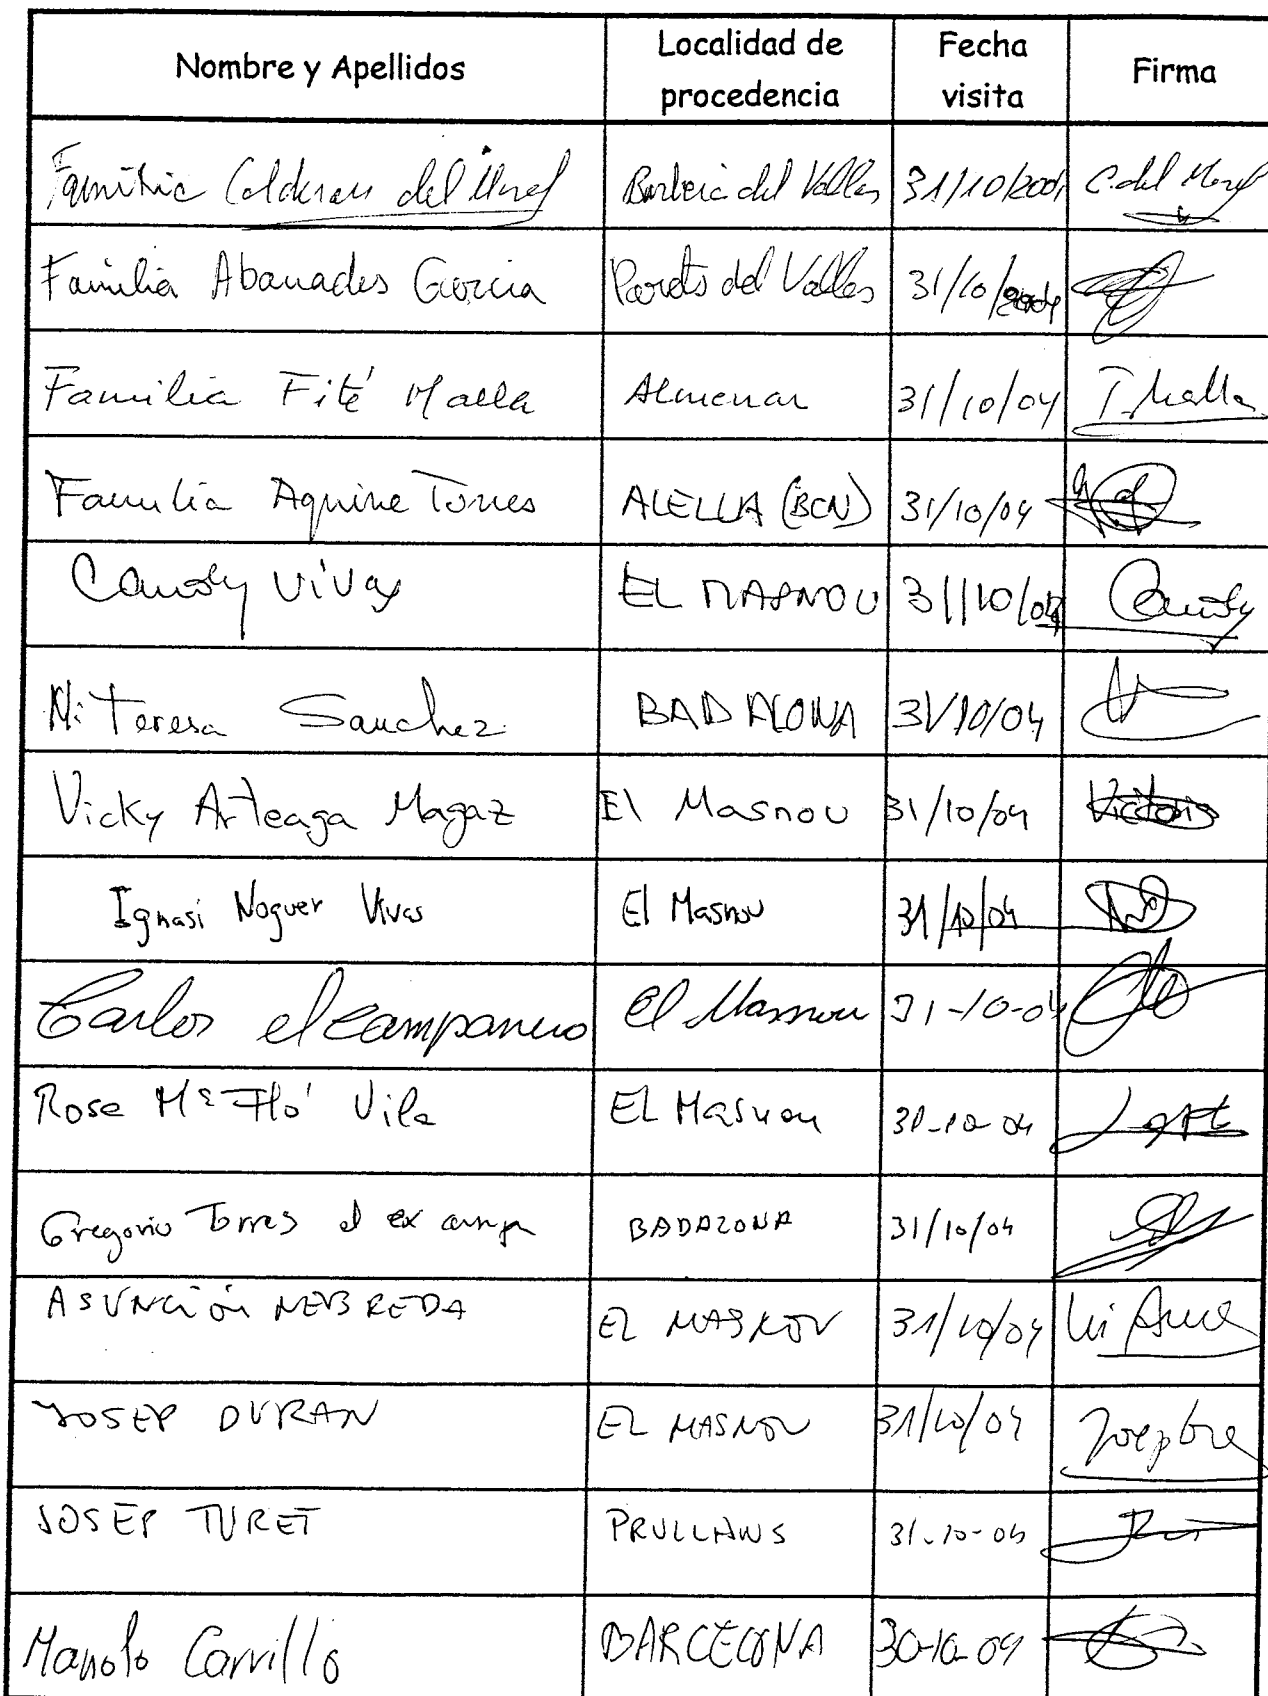 Nombre y Apellidos Localidad de procedencia Fecha visita Firma
Familia Calderon del Barberà del Vallès 31/10/2004 C. del
Familia Abanades Garcia Parets del Vallès 31/10/2004
Familia Fité Malla Almenar 31/10/04 T. Malla
Familia Aguirre Torres ALELLA (BCN) 31/10/04
Candy Vivas EL MASNOU 31/10/04 Candy
Mª Teresa Sanchez BADALONA 31/10/04
Vicky Arteaga Magaz El Masnou 31/10/04 Victoria
Ignasi Noguer Vivas El Masnou 31/10/04
Carlos el campanero el Masnou 31-10-04
Rosa Mª Fló Vila EL Masnou 31-10-04
Gregorio Torres el ex campa BADALONA 31/10/04
ASUNCIÓN NEBREDA EL MASNOU 31/10/04
JOSEP DURAN EL MASNOU 31/10/04
JOSEP TURET PRULLANS 31-10-04
Manolo Carrillo BARCELONA 30-10-04